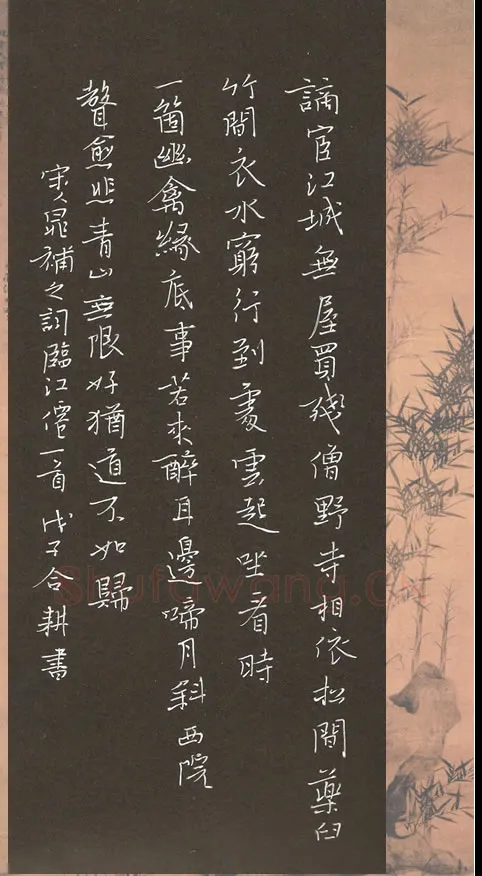 謫宦江城無屋買殘僧野寺相依松間藥臼
竹間衣水窮行到處雲起坐看時
一箇幽禽緣底事苦來醉耳邊啼月斜西院
聲愈悲青山無限好猶道不如歸
宋人晁補之詞臨江僊一首 戊子合耕書
shufawang.cn